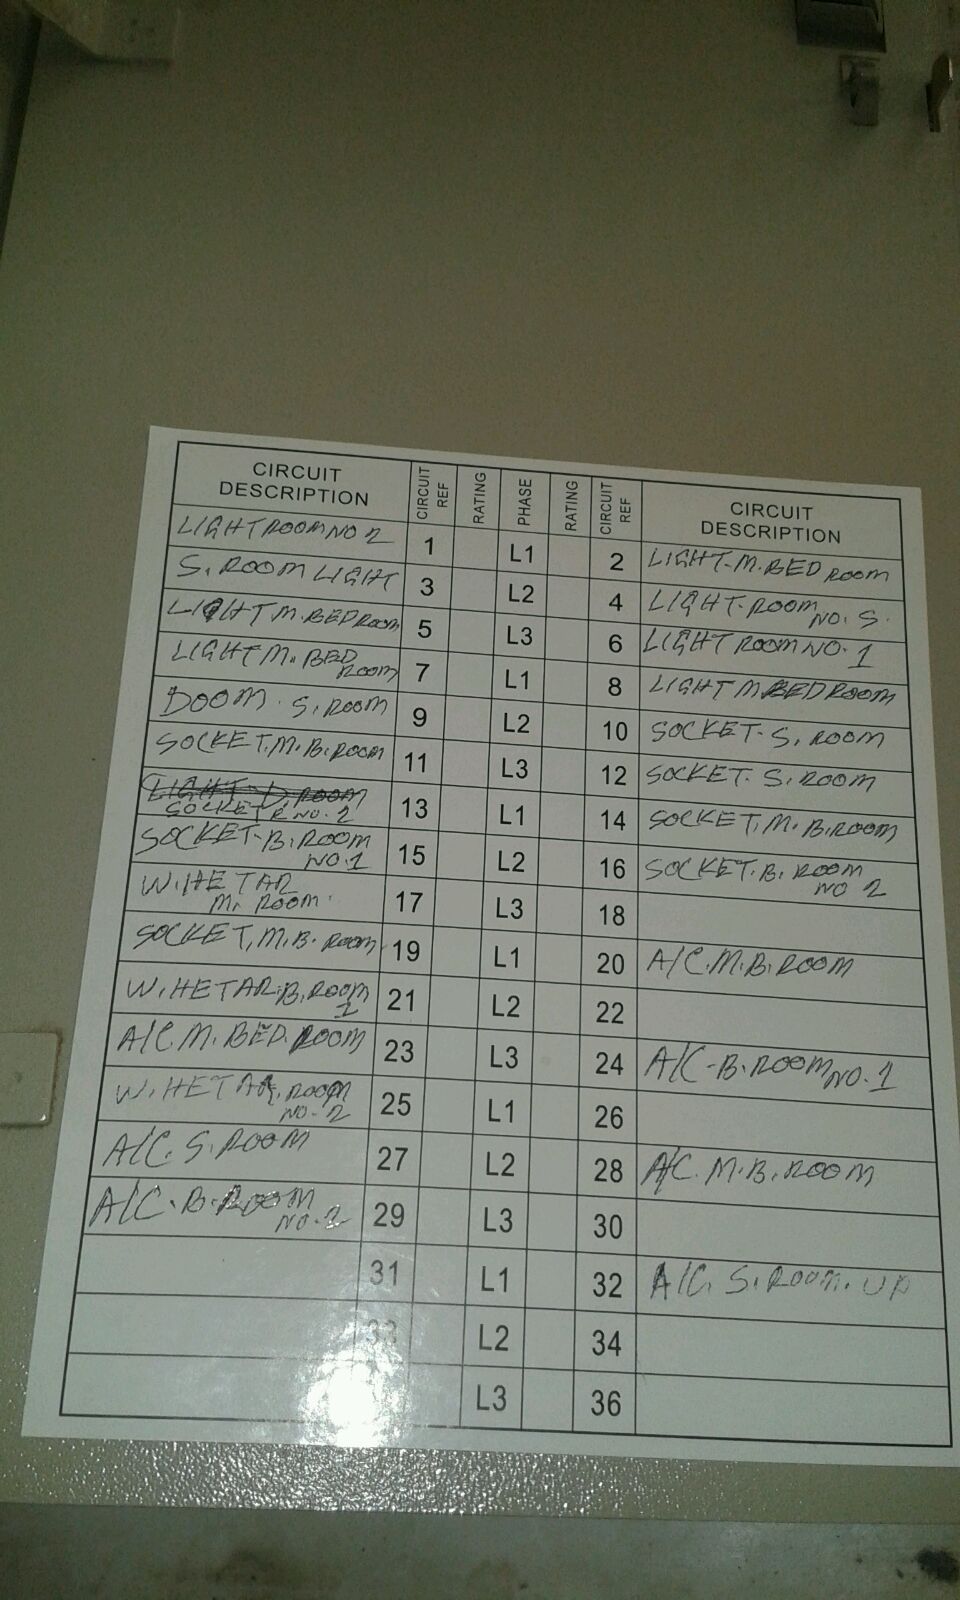 CIRCUIT DESCRIPTION CIRCUIT REF RATING PHASE RATING CIRCUIT REF CIRCUIT DESCRIPTION
LIGHT ROOM NO 2 1 L1 2 LIGHT-M.BED ROOM
S. ROOM LIGHT 3 L2 4 LIGHT-ROOM NO. S.
LIGHT M.BED ROOM 5 L3 6 LIGHT ROOM NO. 1
LIGHT M. BED ROOM 7 L1 8 LIGHT M BED ROOM
DOOM. S. ROOM 9 L2 10 SOCKET- S. ROOM
SOCKET.M.B.ROOM 11 L3 12 SOCKET. S. ROOM
LIGHT-D ROOM
SOCKET R NO. 2 13 L1 14 SOCKET.M.B.ROOM
SOCKET-B.ROOM NO.1 15 L2 16 SOCKET.B.ROOM NO 2
W.HETAR M. ROOM. 17 L3 18
SOCKET,M.B. ROOM 19 L1 20 A/C.M.B.ROOM
W.HETAR.B.ROOM 1 21 L2 22
A/C M. BED. ROOM 23 L3 24 A/C-B.ROOM NO.1
W.HETAR. ROOM NO. 2 25 L1 26
A/C. S. ROOM 27 L2 28 A/C. M.B. ROOM
A/C.B.ROOM NO.2 29 L3 30
31 L1 32 A/C. S.ROOM. UP
33 L2 34
L3 36